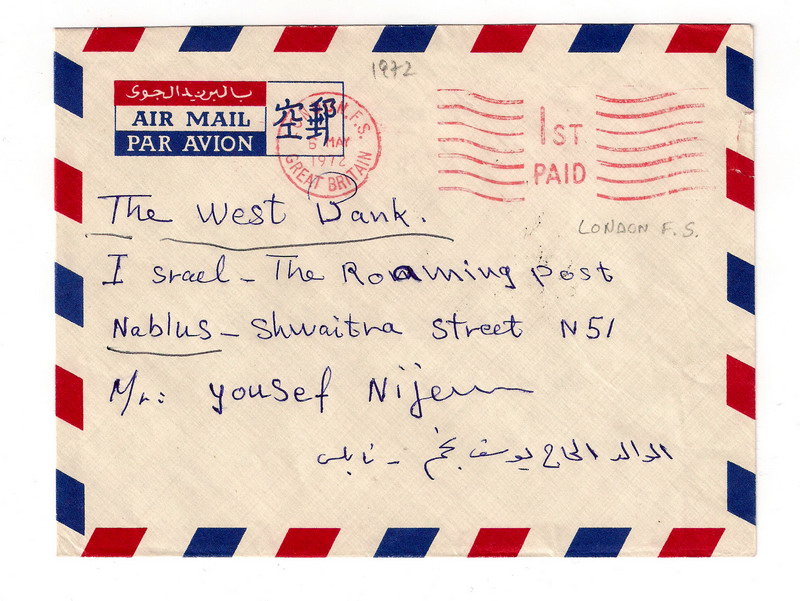 1972
بالبريد الجوى
AIR MAIL
PAR AVION
空郵
LONDON.F.S.
6 MAY
1972
GREAT BRITAIN
1ST
PAID
LONDON F.S.
The West Bank.
Israel - The Roaming post
Nablus - Shwaitra street N51
Mr: yousef Nijem
الوالد الحاج يوسف نجم - نابلس